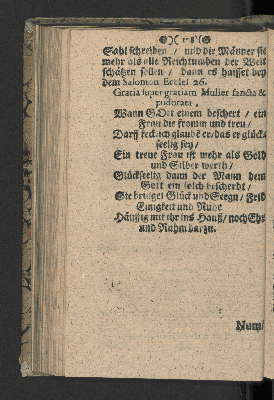 Sahl schreiben / und die Männer sie
mehr als alle Reichtumben der Welt
schätzen sollen / dann es haisset bey
dem Salomon Eccles 26.
Gratia super gratiam Mulier sancta &
pudorata,
Wann GOtt einem beschert / ein
Frau die fromm und treu /
Darff kecklich glaubē er / das er glück-
seelig sey /
Ein treue Frau ist mehr als Gold
und Silber werth /
Glückseelig dann der Mann dem
Gott ein solch bescherdt /
Sie bringet Glück und Seegn / Frid
Einigkeit und Ruhe
Häuffig mit ihr ins Hauß / noch Ehr
und Ruhm darzu.
Num